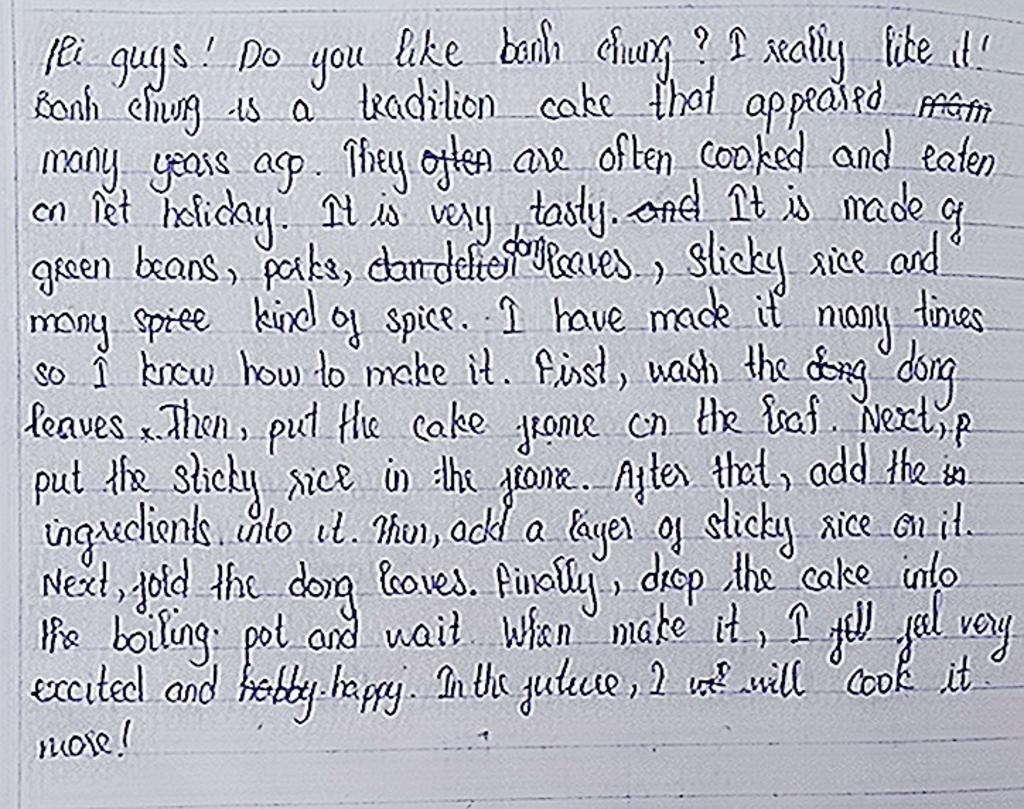 Hi guys! Do you like banh chung? I really like it!
Banh chung is a tradition cake that appeared mam
many years ago. They often are often cooked and eaten
on Tet holiday. It is very tasty. and It is made of
green beans, porks, dandelion dong leaves, sticky rice and
many spice kind of spice. I have made it many times
so I know how to make it. First, wash the dong dong
leaves. Then, put the cake frame on the leaf. Next, p
put the sticky rice in the frame. After that, add the in
ingredients into it. Then, add a layer of sticky rice on it.
Next, fold the dong leaves. Finally, drop the cake into
the boiling pot and wait. When make it, I fell feel very
excited and habby happy. In the future, I will cook it
more!